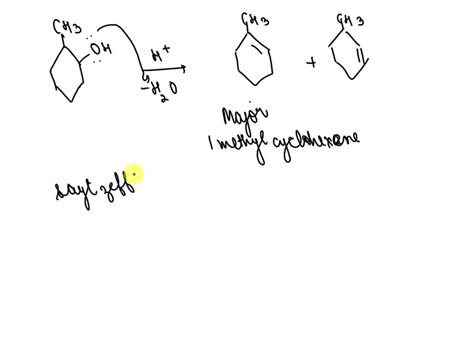 CH3
OH
H+
-H2O
CH3
+
CH3
Major
1 methyl cyclohexene
saytzeff